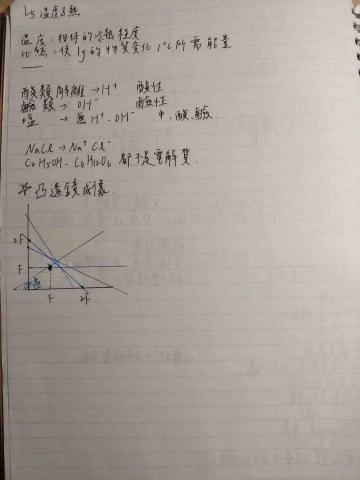 L5 溫度&熱
溫度：物體的冷熱程度
比熱：使1g的物質變化1°C所需能量
酸類解離→H⁺ 酸性
鹼類→ OH⁻ 鹼性
塩 → 無H⁺、OH⁻ 中、酸、鹼
NaCl→Na⁺ Cl⁻
C₂H₅OH、C₆H₁₂O₆ 都不是電解質
凸透鏡成像
2F
F
F 2F